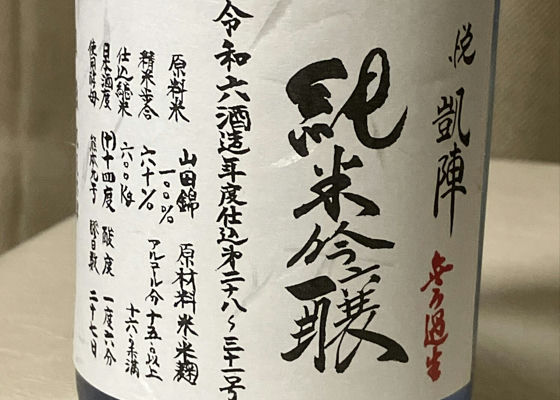 悦 凱陣
無ろ過生
純米吟醸
令和六酒造年度仕込第二十八～三十一号
原料米 山田錦 一〇〇% 原材料 米 米麹
精米歩合 六十% アルコール分 十五度以上
十六度未満
仕込総米 六〇〇Kg
日本酒度 (+)十四度 酸度 一度六分
使用酵母 熊本九号 醪日数 二十七日